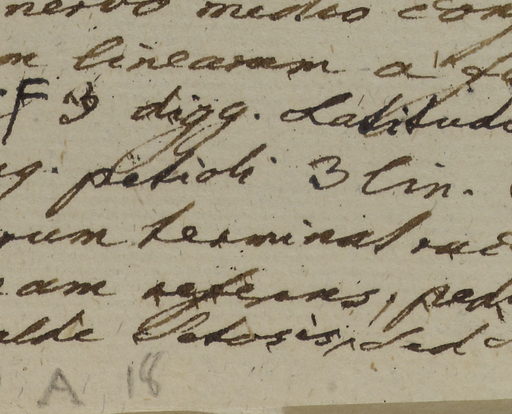 nervo medio com
m linearum a
F 3 digg. Latitudo
g. petioli 3 lin.
rum terminat rac
am referens, ped
alde setosis, sed
A 18